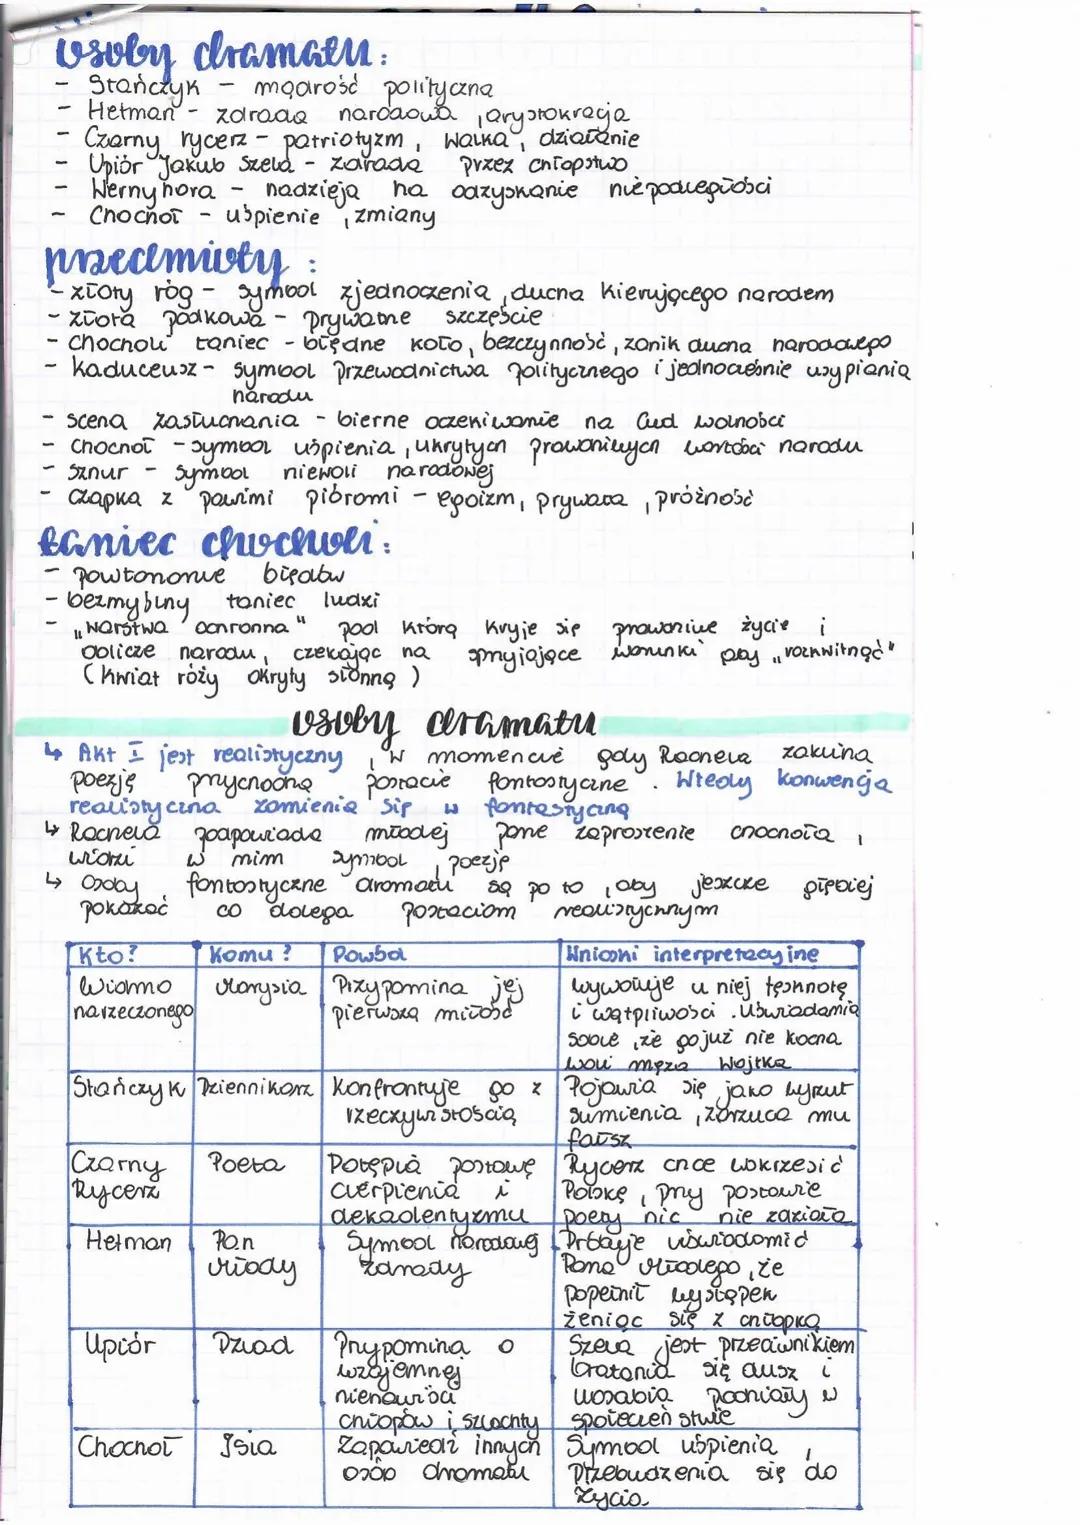 osoby dramatu:
- Stańczyk - mądrość polityczna
- Hetman - zdrada narodowa, arystokracja
- Czarny rycerz - patriotyzm, walka, działanie
- Upiór Jakub Szela - zdrada przez chłopstwo
- Wernyhora - nadzieja na odzyskanie niepodległości
- Chochoł - uśpienie, zmiany
przedmioty:
- złoty róg - symbol zjednoczenia, ducha kierującego narodem
- złota podkowa - prywatne szczęście
- chocholi taniec - błędne koło, bezczynność, zanik ducha narodowego
- kaduceusz - symbol przewodnictwa politycznego i jednocześnie usypiania
narodu
- scena zasłuchania - bierne oczekiwanie na cud wolności
- Chochoł - symbol uśpienia, ukrytych prawdziwych wartości narodu
- Sznur - symbol niewoli narodowej
- czapka z pawimi piórami - egoizm, prywata, próżność
taniec chocholi:
- powtarzanie błędów
- bezmyślny taniec ludzi
- „warstwa ochronna" pod którą kryje się prawdziwe życie i
oblicze narodu, czekając na sprzyjające warunki aby „rozkwitnąć"
(kwiat róży okryty słomą)
osoby dramatu
↳ Akt I jest realistyczny, w momencie gdy Rachela zaklina
poezję przychodzą postacie fantastyczne. Wtedy konwencja
realistyczna zamienia się w fantastyczną
↳ Rachela podpowiada młodej parze zaproszenie chochoła,
widzi w nim symbol, poezję
↳ Osoby fantastyczne dramatu są po to, aby jeszcze głębiej
pokazać co dolega postaciom realistycznym
Kto? Komu? Powód Wnioski interpretacyjne
Widmo narzeczonego Marysia Przypomina jej pierwszą miłość wywołuje u niej tęsknotę
i wątpliwości. Uświadamia
sobie, że go już nie kocha
woli męża Wojtka
Stańczyk Dziennikarz Konfrontuje go z rzeczywistością Pojawia się jako wyrzut
sumienia, zarzuca mu
fałsz
Czarny Rycerz Poeta Potępia postawę cierpienia i dekadentyzmu Rycerz chce wskrzesić
Polskę, przy postawie
poety nic nie zdziała
Hetman Pan Młody Symbol narodowej zdrady Próbuje uświadomić
Pana Młodego, że
popełnił występek
żeniąc się z chłopką
Upiór Dziad Przypomina o wzajemnej nienawiści chłopów i szlachty Szela jest przeciwnikiem
bratania się dusz i
uosabia podziały w
społeczeństwie
Chochoł Isia Zapowiedź innych osób dramatu Symbol uśpienia,
przebudzenia się do
życia